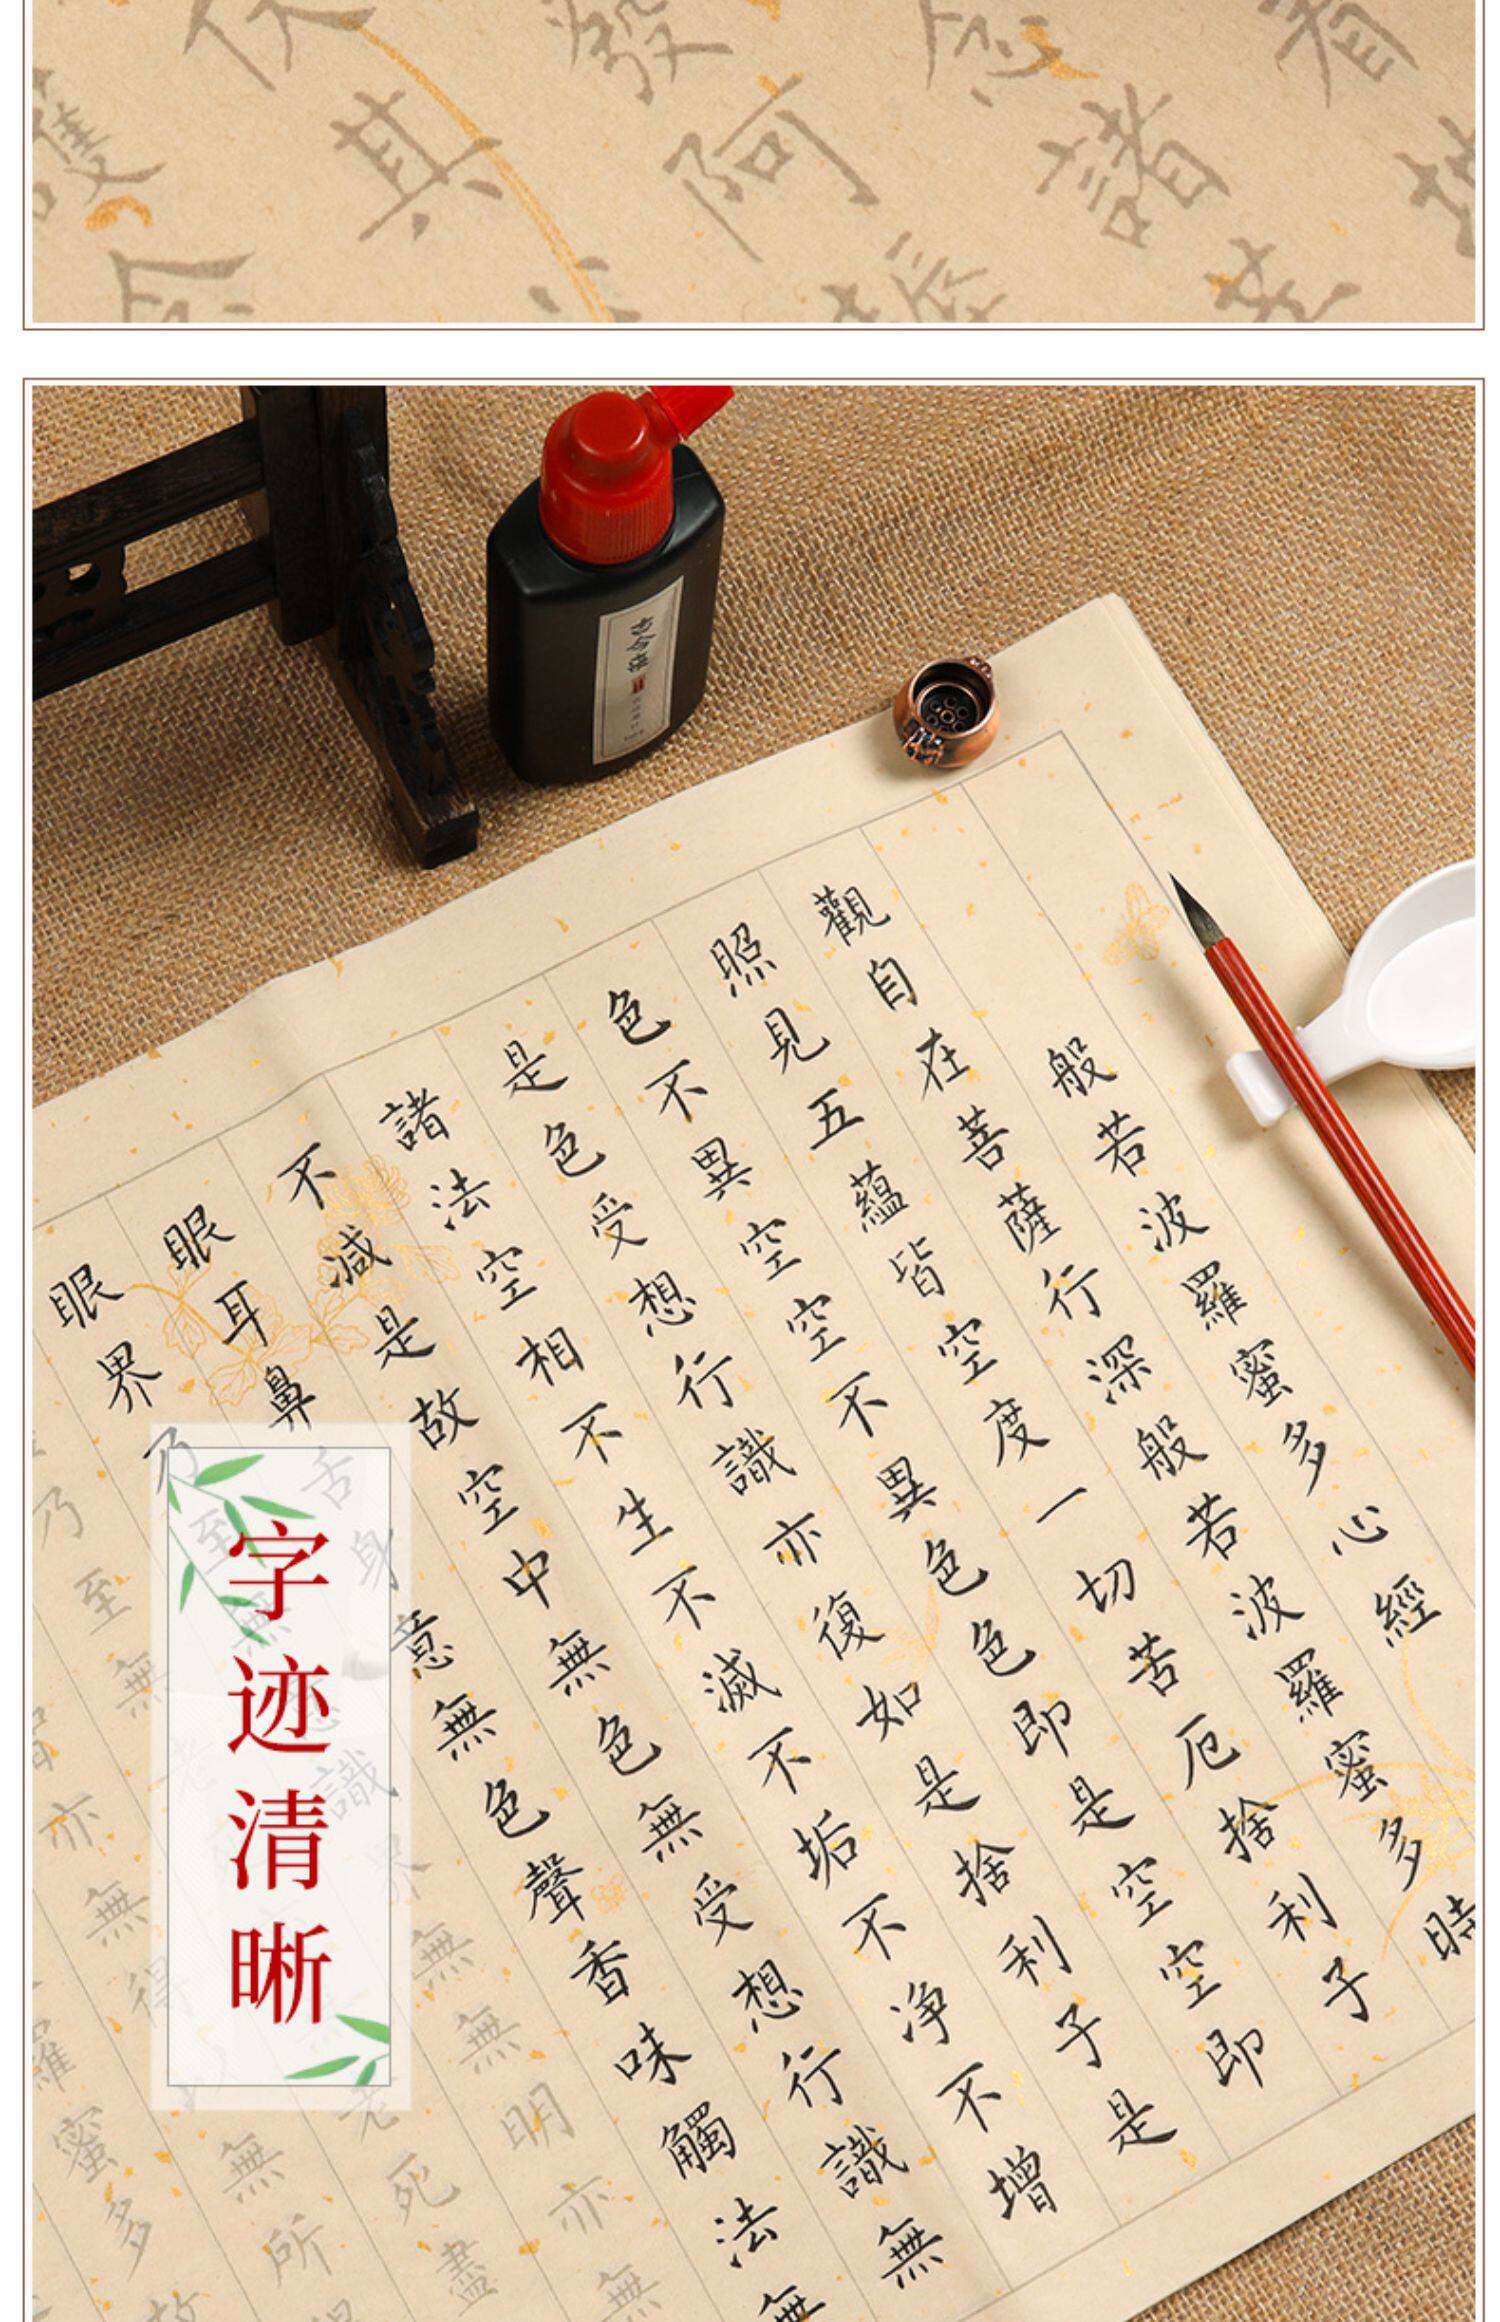 其
阿
諸
般若波羅蜜多心經
觀自在菩薩行深般若波羅蜜多時
照見五蘊皆空度一切苦厄捨利子
色不異空空不異色色即是空空即
是色受想行識亦復如是捨利子是
諸法空相不生不滅不垢不净不增
不減是故空中無色無受想行識無
眼耳鼻舌身意無色聲香味觸法無
眼界乃至無意識界無無明亦無
乃至無老死盡
亦無得無所得
羅蜜多故
字迹清晰